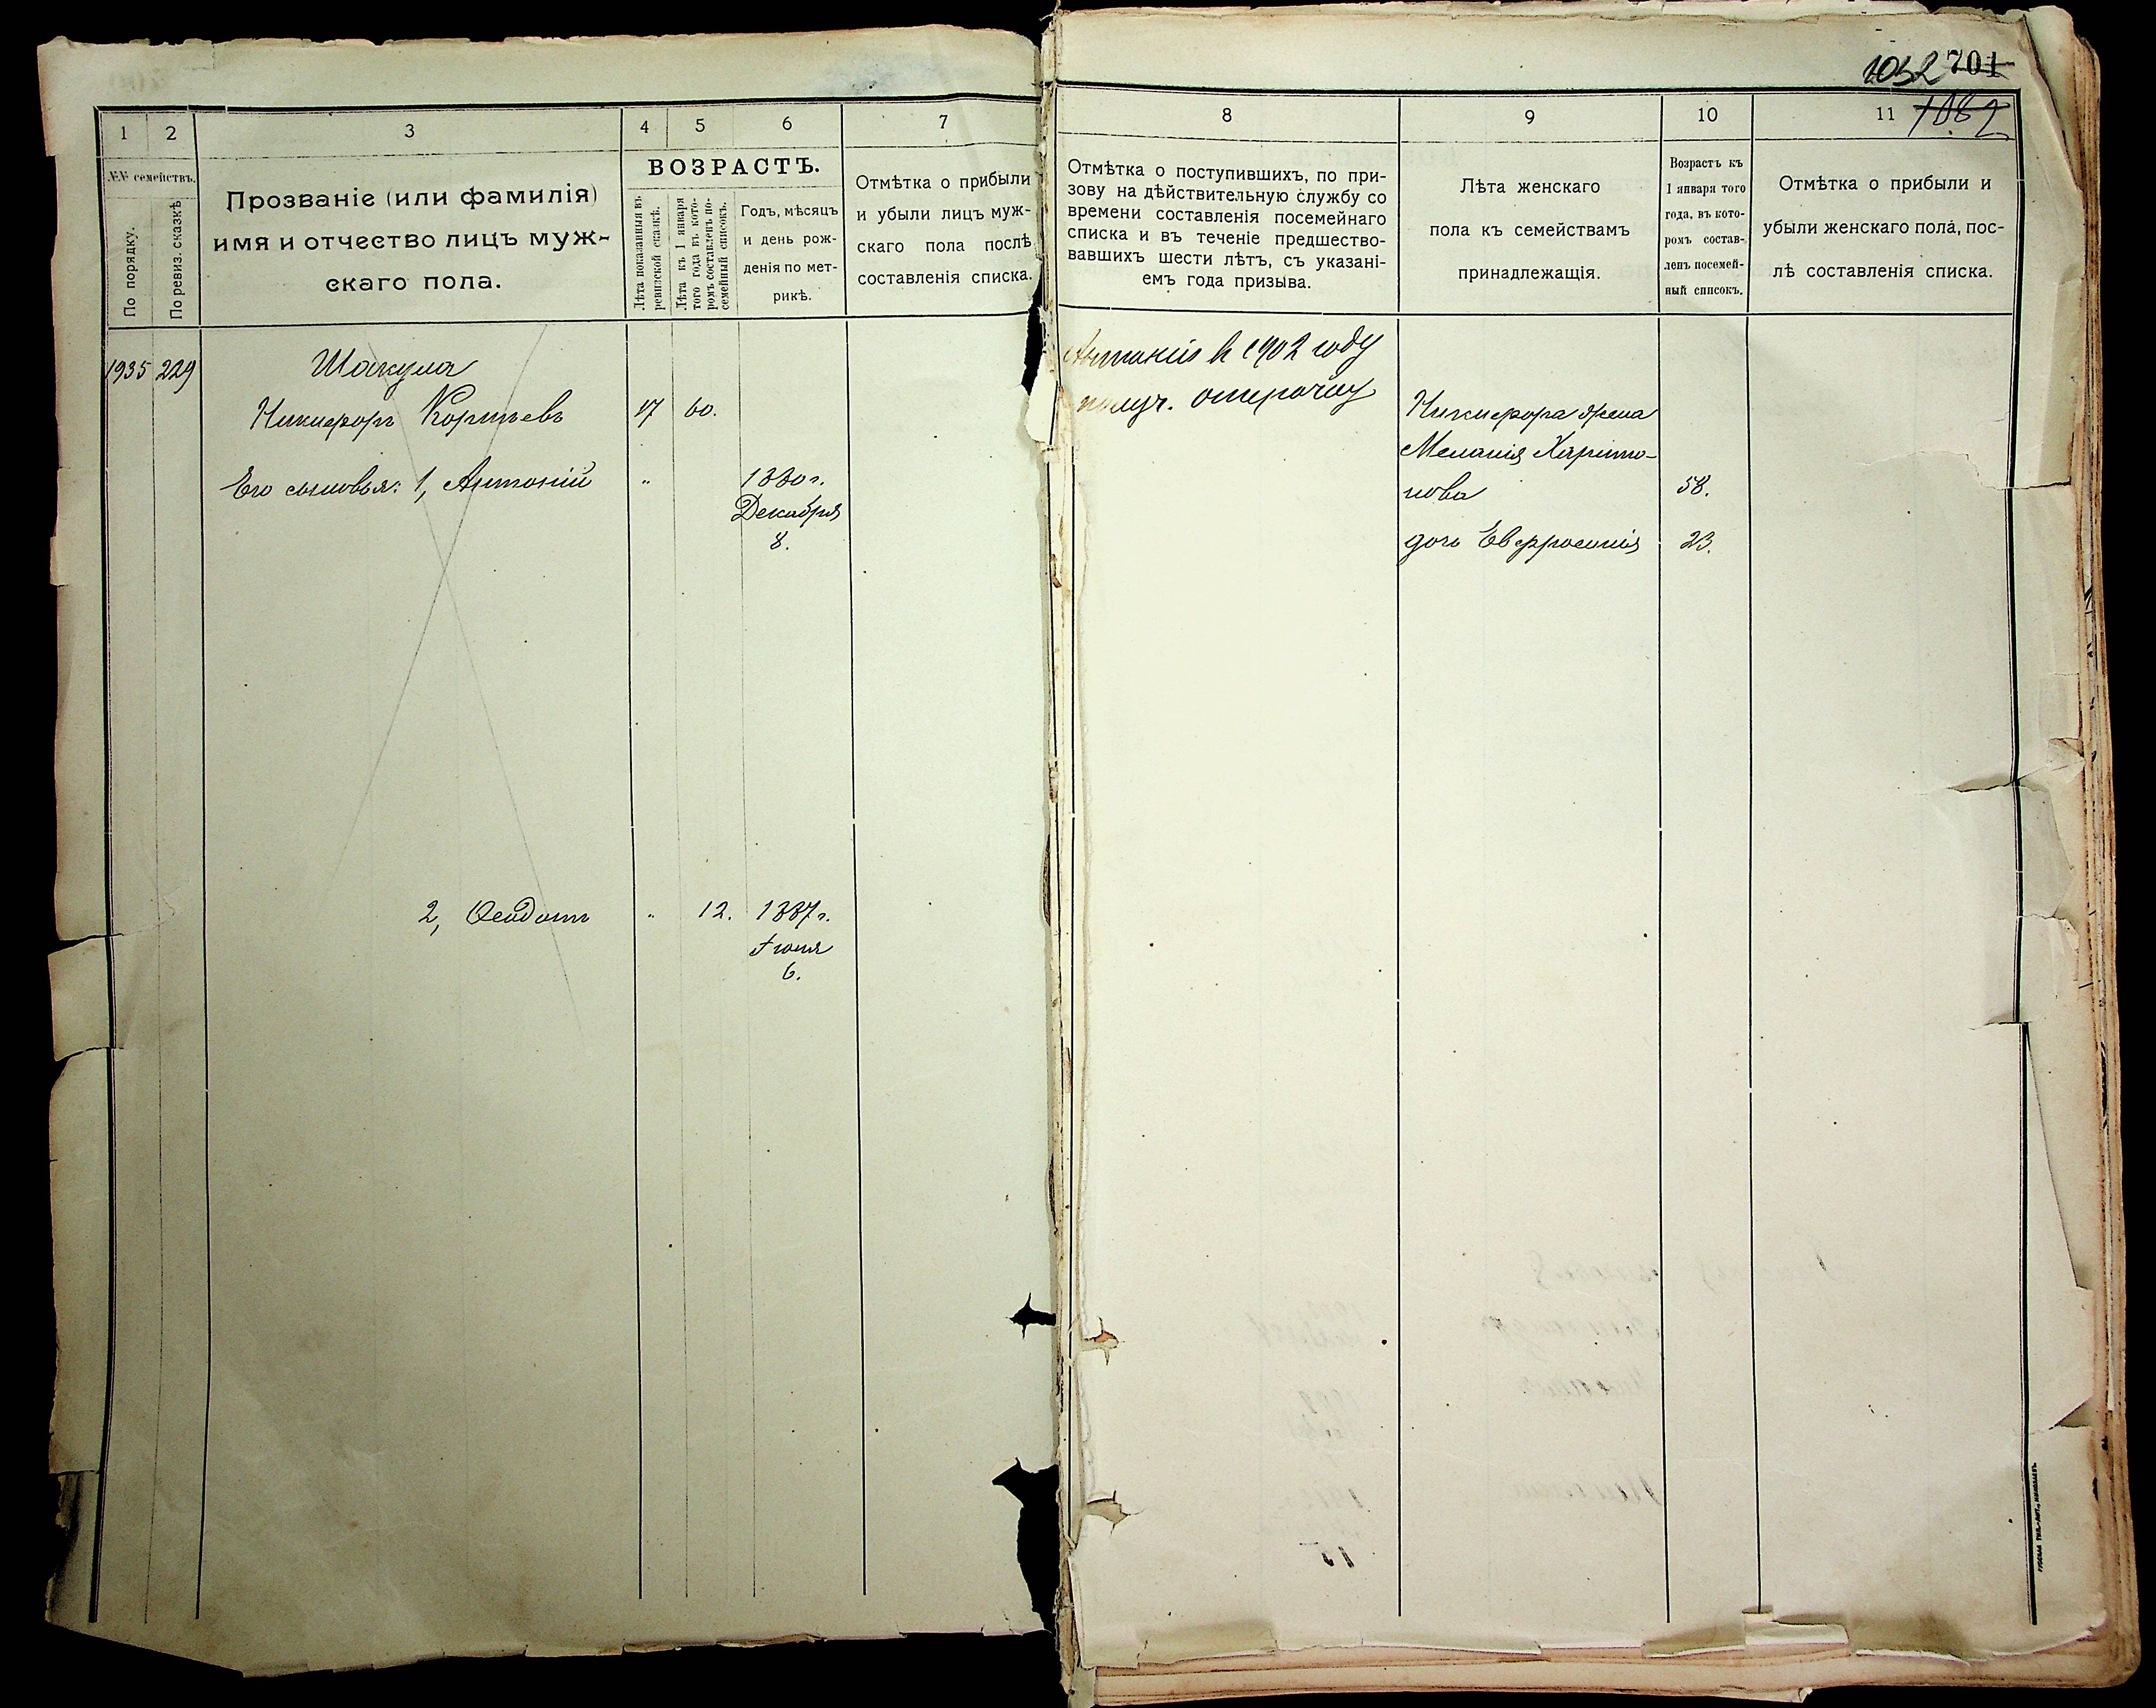 1032 701
1082
1
2
3
4
5
6
7
№№ семействъ.
По порядку.
По ревиз. сказкѣ
Прозваніе (или фамилія)
имя и отчество лицъ муж-
скаго пола.
ВОЗРАСТЪ.
Лѣта показанныя въ
ревизской сказкѣ.
Лѣта къ 1 января
того года въ кото-
ромъ составленъ по-
семейный списокъ.
Годъ, мѣсяцъ
и день рож-
денія по мет-
рикѣ.
Отмѣтка о прибыли
и убыли лицъ муж-
скаго пола послѣ
составленія списка.
1935 229
Шакула
Никифоръ Корнѣевъ 17 60.
Его сыновья: 1, Антоній " 1880 г.
Декабря
8.
2, Ѳеодотъ " 12. 1887 г.
Іюня
6.
8
9
10
11
Отмѣтка о поступившихъ, по при-
зову на дѣйствительную службу со
времени составленія посемейнаго
списка и въ теченіе предшество-
вавшихъ шести лѣтъ, съ указані-
емъ года призыва.
Лѣта женскаго
пола къ семействамъ
принадлежащія.
Возрастъ къ
1 января того
года, въ кото-
ромъ состав-
ленъ посемей-
ный списокъ.
Отмѣтка о прибыли и
убыли женскаго пола, пос-
лѣ составленія списка.
Антоній въ 1902 году
получ. отсрочку
Никифора жена
Меланія Харито-
нова 58.
дочь Евфросинія 23.